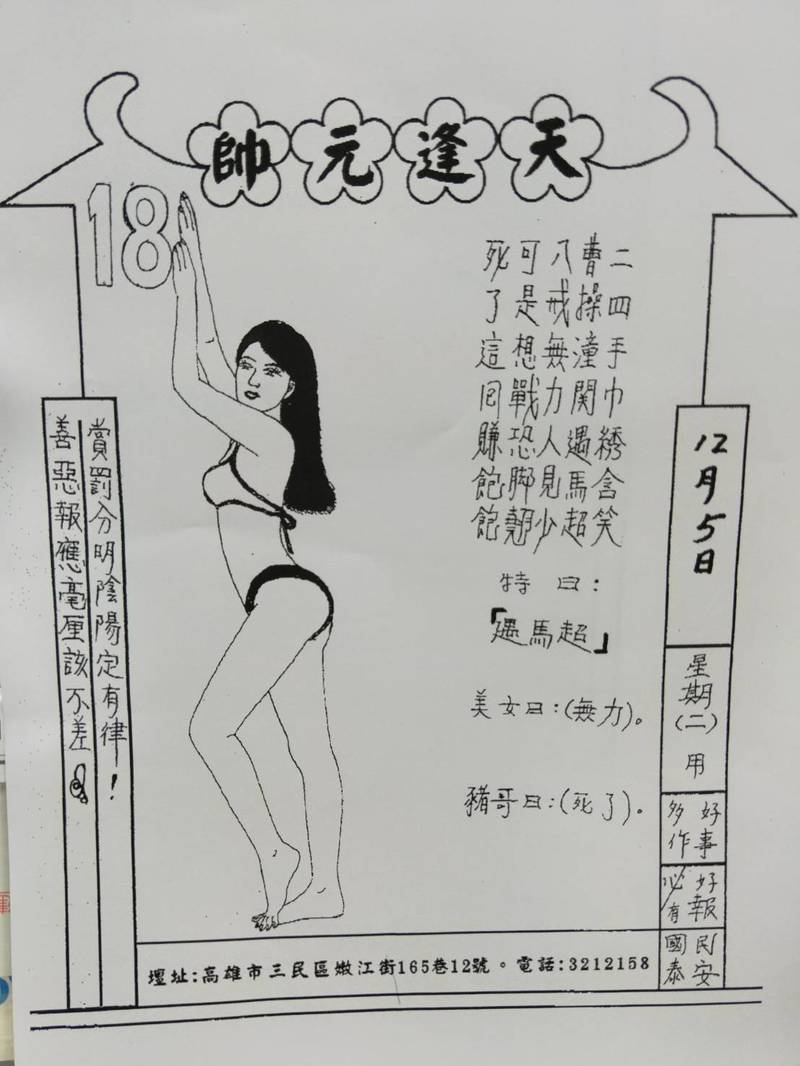 天逢元帥
18
二四手巾綉含笑
曹操潼関遇馬超
八戒無力人見少
可是想戰恐脚翹
死了這回賺飽飽
特曰:
「遇馬超」
美女曰:(無力)。
豬哥曰:(死了)。
12月5日
星期(二)用
好事多作
好報必有
民安國泰
賞罰分明陰陽定有律!
善惡報應毫厘該不差
壇址:高雄市三民區嫩江街165巷12號。電話:3212158